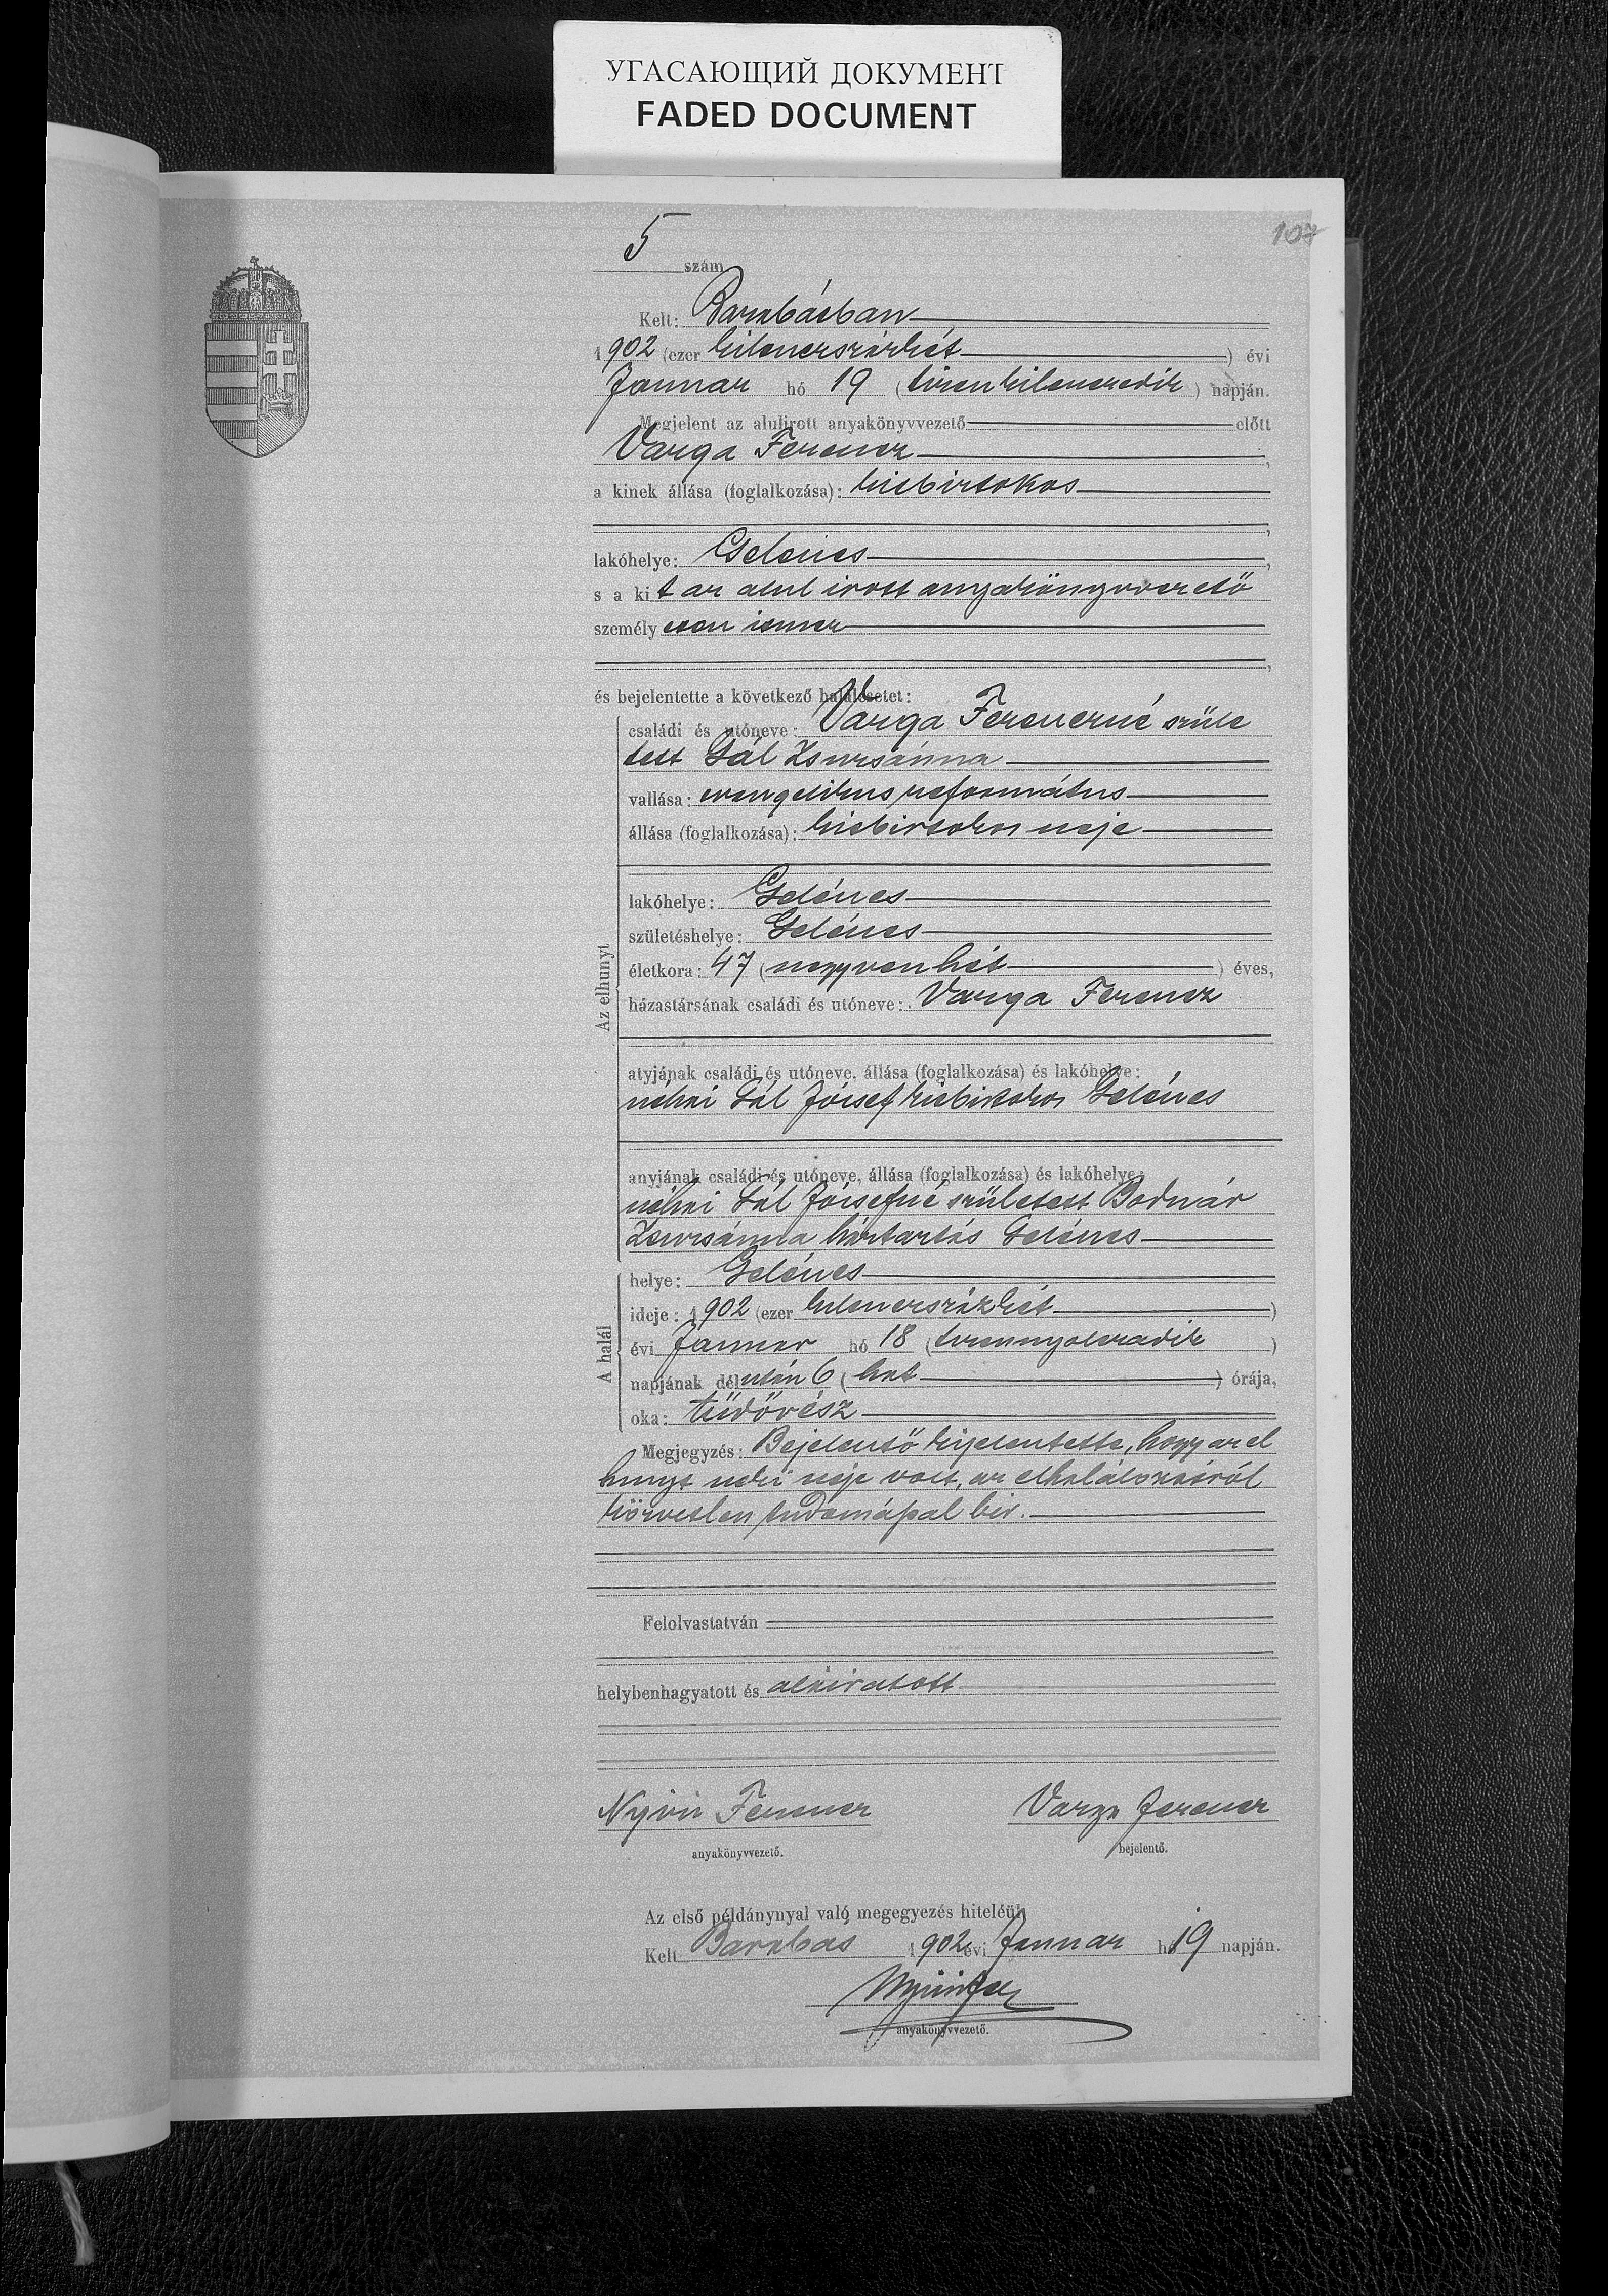 УГАСАЮЩИЙ ДОКУМЕНТ
FADED DOCUMENT
107
5 szám
Kelt: Barabásban
1902 (ezer kilenczszázkét) évi
Január hó 19 (tizenkilenczedik) napján.
Megjelent az alulirott anyakönyvvezető előtt
Varga Ferencz,
a kinek állása (foglalkozása): kisbirtokos
,
lakóhelye: Gelénes,
s a kit az alul irott anyakönyvvezető
személyesen ismer
,
és bejelentette a következő halálesetet:
Az elhunyt
családi és utóneve: Varga Ferenczné szüle
tett Gál Zsuzsánna
vallása: evangelikus református
állása (foglalkozása): kisbirtokos neje
lakóhelye: Gelénes
születéshelye: Gelénes
életkora: 47 (negyvenhét) éves,
házastársának családi és utóneve: Varga Ferencz
atyjának családi és utóneve, állása (foglalkozása) és lakóhelye:
néhai Gál József kisbirtokos Gelénes
anyjának családi és utóneve, állása (foglalkozása) és lakóhelye:
néhai Gál Józsefné született Bodnár
Zsuzsánna háztartás Gelénes
A halál
helye: Gelénes
ideje: 1902 (ezer kilenczszázkét)
évi Január hó 18 (tizennyolczadik)
napjának délután 6 (hat) órája,
oka: tüdővész
Megjegyzés: Bejelentő kijelentette, hogy az el
hunyt neki neje volt, az elhalálozásról
közvetlen tudomással bir.
Felolvastatván
helybenhagyatott és aláiratott
Nyiri Ferencz
Varga Ferencz
anyakönyvvezető.
bejelentő.
Az első példánynyal való megegyezés hiteléül
Kelt Barabás 1902 évi Január hó 19 napján.
anyakönyvvezető.